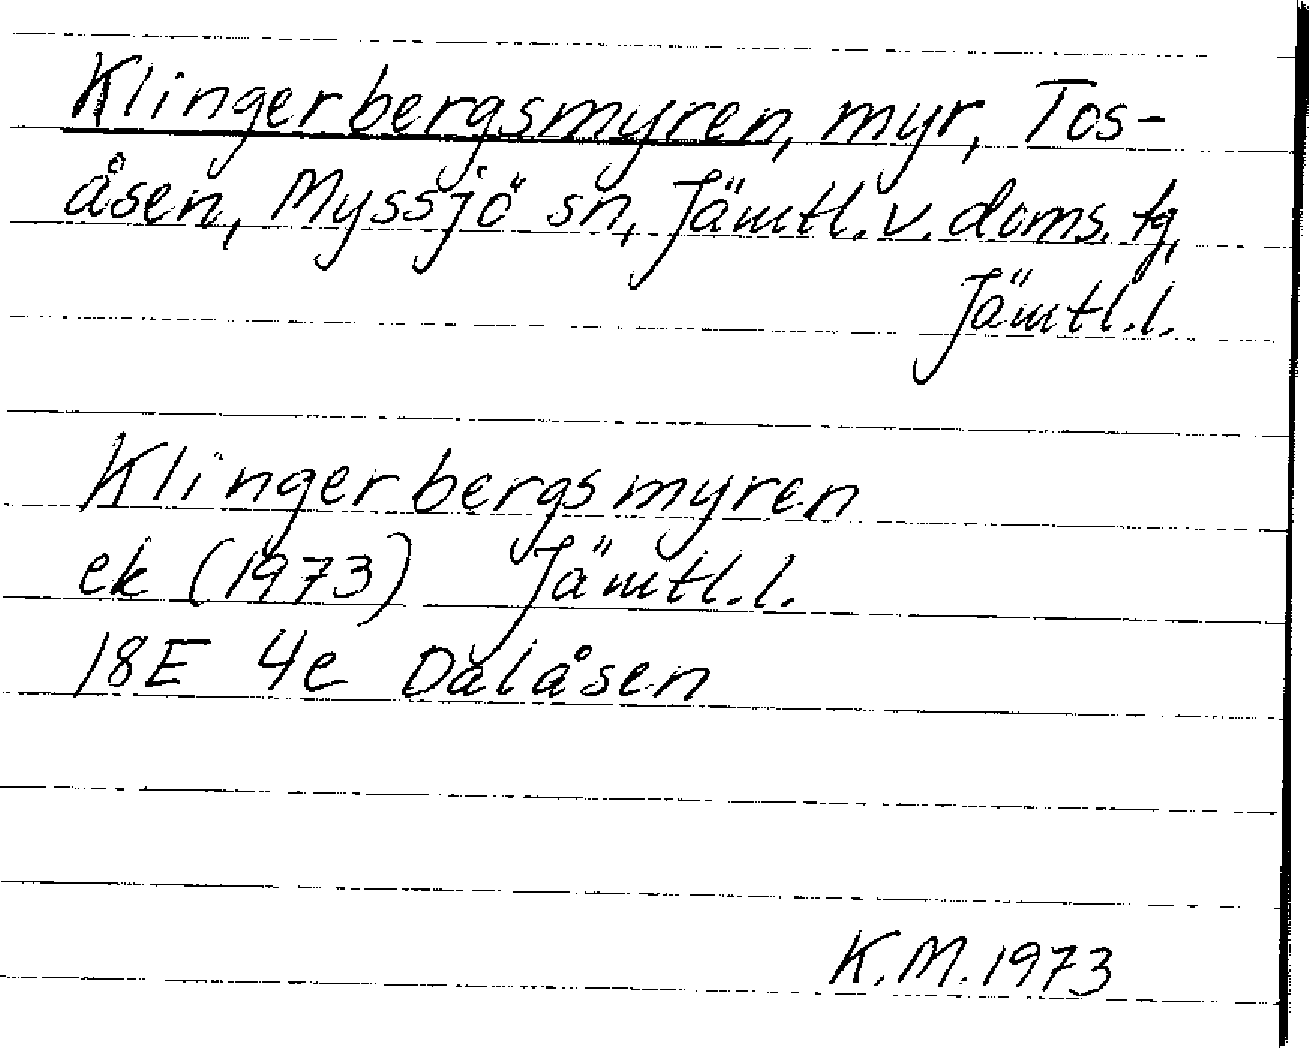 Klingerbergsmyren, myr, Tos-
åsen, Myssjö sn, Jämtl. v. doms. tg,
Jämtl.l.
Klingerbergsmyren
ek (1973) Jämtl.l.
18E 4e Dalåsen
K.M. 1973